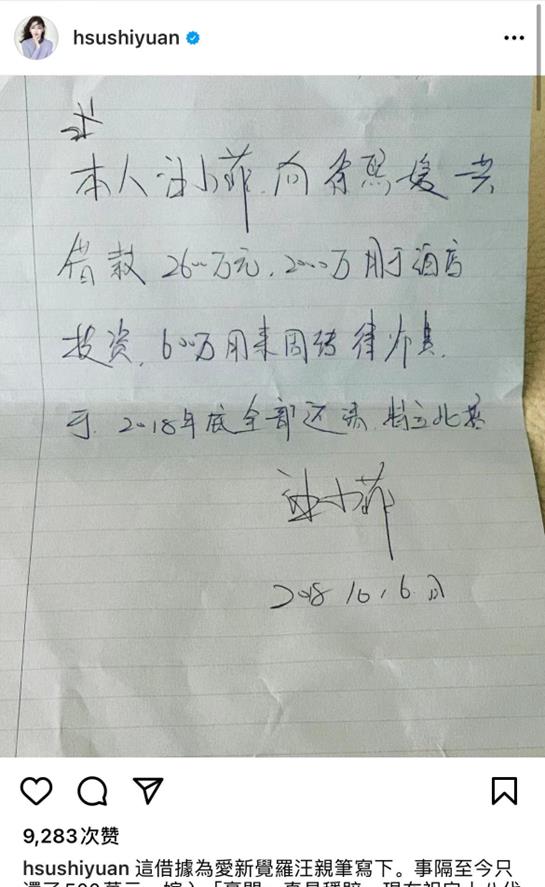 hsushiyuan
本人汪小菲.向徐熙媛共
借款2600万元.2000万用于酒店
投资.600万用来周转律师费.
于.2018年底全部还清.特立此据
汪小菲
2018.10.6.日
9,283次赞
hsushiyuan 這借據為愛新覺羅汪親筆寫下。事隔至今只
還了500萬元，嫁入「豪門」真是穩賠，現在